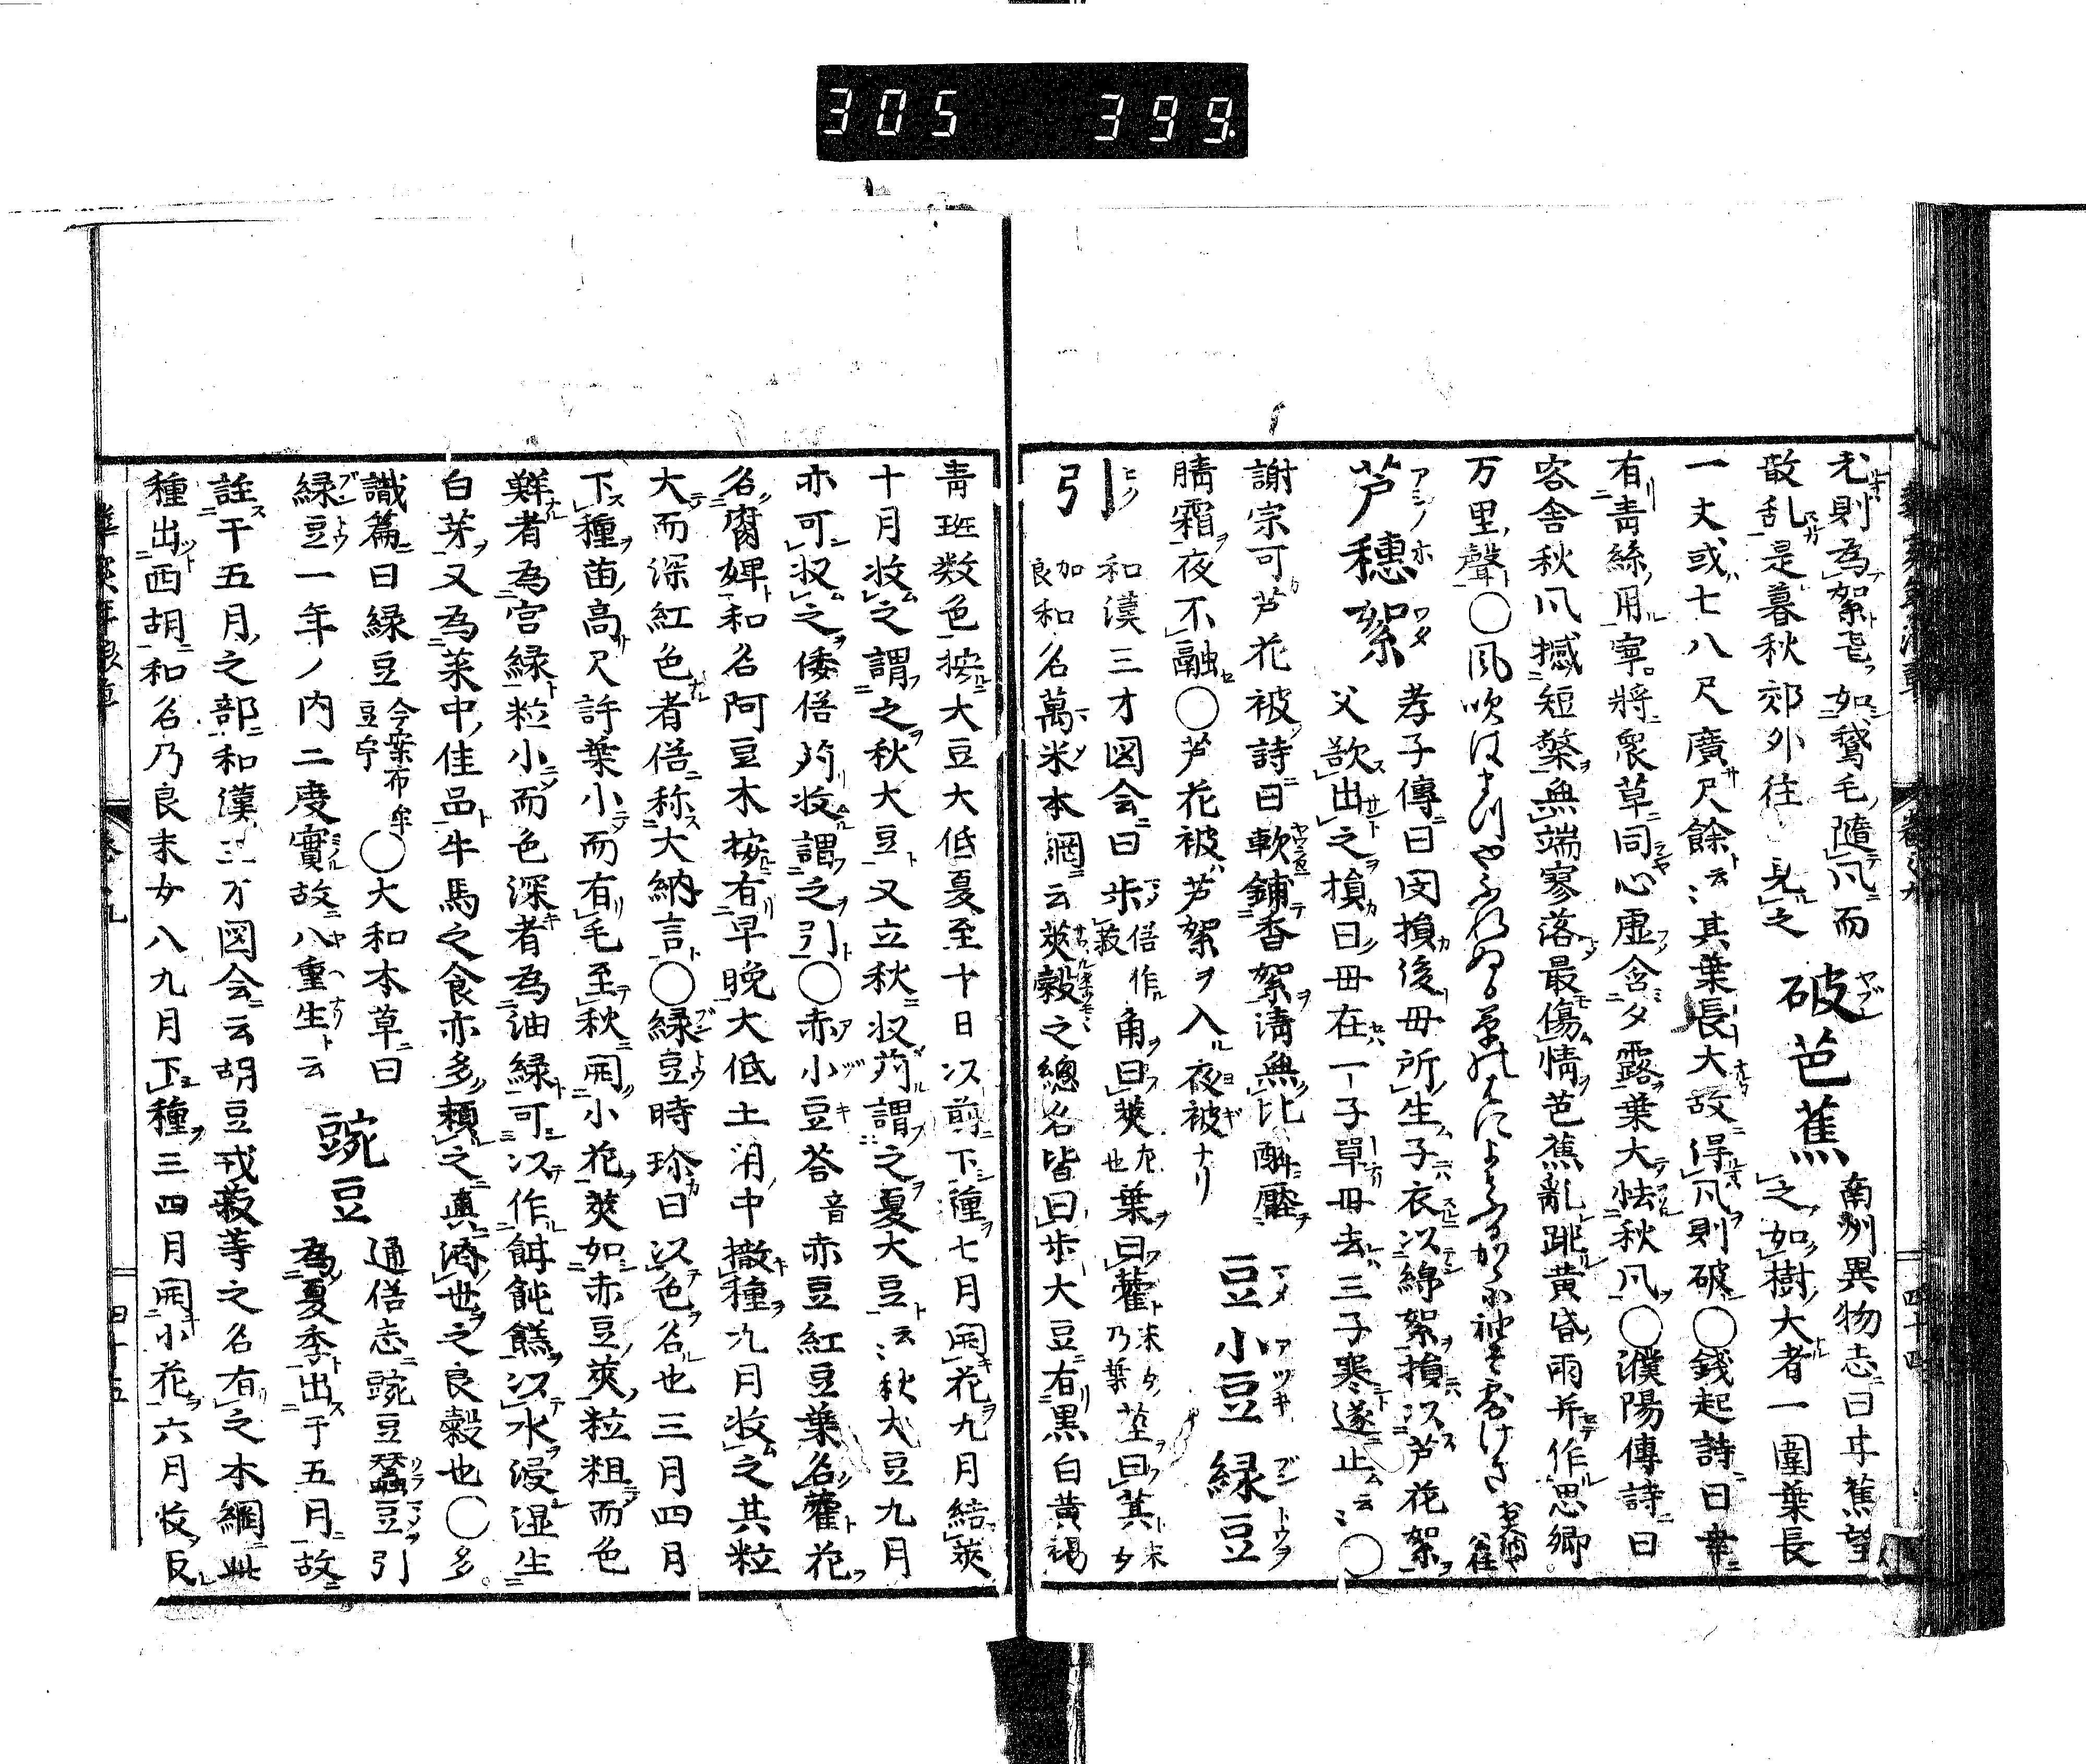 305 399
尢則為絮毛如鵞毛隨凨而
散乱是暮秋郊外往見之 破芭蕉 南州異物志曰芉蕉望之如樹大者一圍葉長
一丈或七八尺廣尺餘云〻其葉長大故得凨則破〇錢起詩曰幸
有青絲用寧將衆草同心虚含夕露葉大怯秋凨〇濮陽傳詩曰
客舎秋凨撼短檠無端寥落最傷情芭蕉亂跳黄昏雨并作思郷
万里聲〇風吹は
芦穗絮 アシノホワタ 孝子傳曰閔損後母所生子衣以綿絮損以芦花絮
父欲出之損曰母在一子單母去三子寒遂止云〻〇
謝宗可芦花被詩曰軟鋪香絮清無比醉壓
晴霜夜不融〇芦花被芦絮ヲ入夜被ナリ 豆小豆緑豆 マメアツキブントウヲ
引 ヒク 和漢三才図会曰尗俗作菽角曰莢葉曰藿茎曰萁
加良 和名萬米本綱云莢穀之總名皆曰尗大豆有黒白黄褐
青斑数色按大豆大低夏至十日以前下種七月開花九月結莢
十月收之謂之秋大豆又立秋收苅謂之夏大豆云〻秋大豆九月
亦可收之倭俗苅收謂之引〇赤小豆荅音赤豆紅豆葉名藿花
名腐婢和名阿豆木按有早晩大低土用中撒種九月收之其粒
大而深紅色者俗称大納言〇緑豆時珍曰以色名也三月四月
下種苗高尺許葉小而有毛至秋開小花莢如赤豆莢粒粗而色
鮮者為官緑粒小而色深者為油緑可以作餌飩餻以水浸湿生
白芽又為菜中佳品牛馬之食亦多頼之真濟世之良穀也〇多
識篇曰緑豆今案布牟豆宇〇大和本草曰
緑豆一年ノ内二度實故八重生云 豌豆 通俗志豌豆蠶豆引
為夏季出于五月故
註干五月之部和漢三才図会云胡豆戎菽等之名有之本綱此
種出西胡和名乃良末女八九月下種三四月開小花六月收反